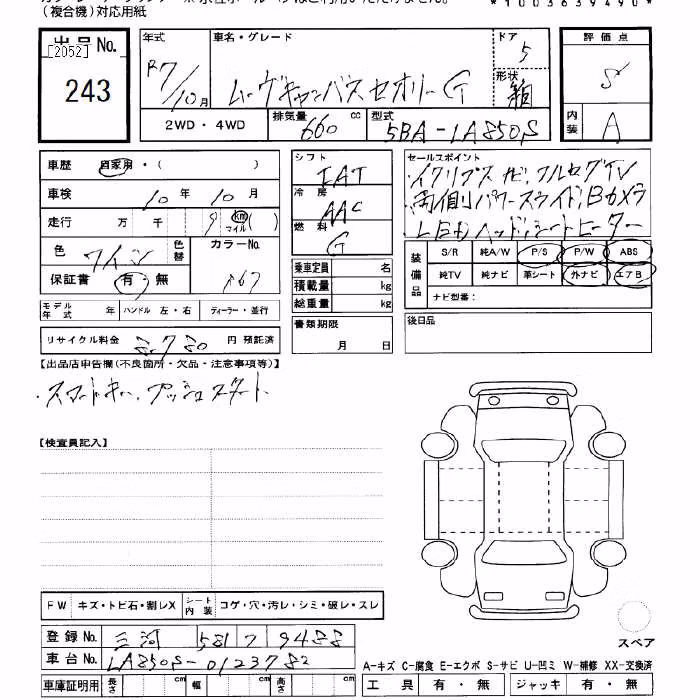 (複合機)対応用紙
*1003639490*
出品No.
[2052]
243
年式
R7/10月
車名・グレード
ムーヴキャンバス セオリーG
ドア
5
形状
箱
2WD・4WD
排気量
660 cc
型式
5BA-LA850S
評価点
S
内装
A
車歴 自家用・( )
車検 10年 10月
走行 万 千 9 km マイル ( )
色 ワイン
色替
カラーNo.
保証書 有・無
モデル年式 年 ハンドル 左・右 ディーラー・並行
リサイクル料金 円 預託済
シフト
IAT
冷房
AAC
燃料
G
乗車定員 名
積載量 kg
総重量 kg
書類期限
月 日
セールスポイント
・イクリプスナビ、フルセグTV
・両側パワースライド、Bカメラ
・LEDヘッド、シートヒーター
装備品
S/R 純A/W P/S P/W ABS
純TV 純ナビ 革シート 外ナビ エアB
ナビ型番:
後日品
【出品店申告欄(不良箇所・欠品・注意事項等)】
・スマートキー、プッシュスタート
【検査員記入】
FW キズ・トビ石・割レX シート内装 コゲ・穴・汚レ・シミ・破レ・スレ
登録No. 三河 581 ワ 9488
車台No. LA850S-0123782
車庫証明用 長さ cm 幅 cm 高さ cm
スペア
A-キズ C-腐食 E-エクボ S-サビ U-凹ミ W-補修 XX-交換済
工具 有・無 ジャッキ 有・無